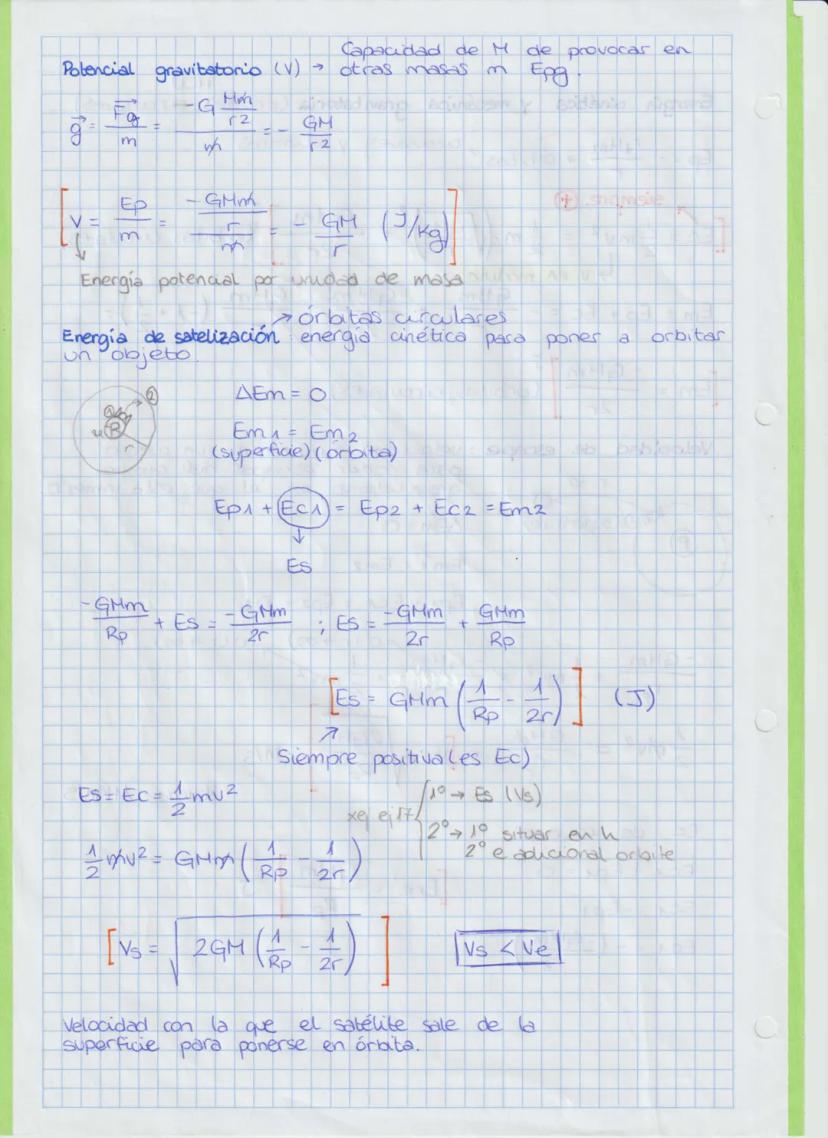 Capacidad de M de provocar en
Potencial gravitatorio (V) → otras masas m Epg.
g⃗ = F⃗g/m = (-G Mm/r2)/m = - GM/r2
[V = Ep/m = (-GMm/r)/m = - GM/r (J/Kg)]
↓
Energía potencial por unidad de masa
→ órbitas circulares
Energía de satelización: energía cinética para poner a orbitar
un objeto.
ΔEm = 0
Em1 = Em2
(superficie) (órbita)
Ep1 + Ec1 = Ep2 + Ec2 = Em2
↓
Es
-GMm/Rp + Es = -GMm/2r ; Es = -GMm/2r + GMm/Rp
[Es = GMm (1/Rp - 1/2r)] (J)
Siempre positiva (es Ec)
Es = Ec = 1/2 mv²
xej ej 17 { 1º → Es (Vs)
2º → 1º situar en h
2º e adicional orbite
1/2 mv² = GMm (1/Rp - 1/2r)
[Vs = √(2GM (1/Rp - 1/2r))]
Vs < Ve
Velocidad con la que el satélite sale de la
superficie para ponerse en órbita.